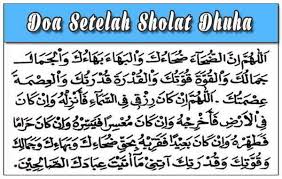 Doa Setelah Sholat Dhuha
اَللّٰهُمَّ اِنَّ الضُّحَآءَ ضُحَاءُكَ وَالْبَهَاءَ بَهَاءُكَ وَالْجَمَالَ
جَمَالُكَ وَالْقُوَّةَ قُوَّتُكَ وَالْقُدْرَةَ قُدْرَتُكَ وَالْعِصْمَةَ
عِصْمَتُكَ . اَللّٰهُمَّ اِنْ كَانَ رِزْقِى فِى السَّمَآءِ فَاَنْزِلْهُ وَاِنْ كَانَ
فِى اْلاَرْضِ فَاَخْرِجْهُ وَاِنْ كَانَ مُعْسِرًا فَيَسِّرْهُ وَاِنْ كَانَ حَرَامًا
فَطَهِّرْهُ وَاِنْ كَانَ بَعِيْدًا فَقَرِّبْهُ بِحَقِّ ضُحَاءِكَ وَبَهَاءِكَ وَجَمَالِكَ
وَقُوَّتِكَ وَقُدْرَتِكَ آتِنِىْ مَآاَتَيْتَ عِبَادَكَ الصَّالِحِيْنَ.